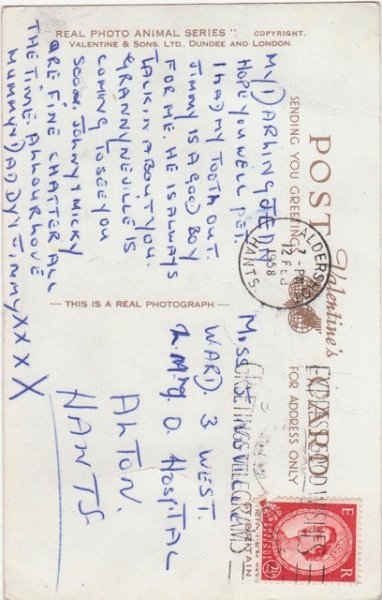 "REAL PHOTO ANIMAL SERIES" COPYRIGHT.
VALENTINE & SONS. LTD., DUNDEE AND LONDON.
MY DARLING JEAN
HOPE YOU WELL PET.
I HAD MY TOOTH OUT.
JIMMY IS A GOOD BOY
FOR ME. HE IS ALWAYS
TALKIN ABOUT YOU.
GRANNY NEVILLE IS
COMING TO SEE YOU
SOON. JOHNY & MICKY
ARE FINE CHATTER ALL
THE TIME. ALL OUR LOVE
MUMMY DADDY JIMMY X X X X
— THIS IS A REAL PHOTOGRAPH —
SENDING YOU GREETINGS
POST CARD
Valentine's
FOR ADDRESS ONLY
ALDERSHOT
7-PM
12 FEB
1958
HANTS
MISS JEAN
WARD. 3 WEST.
L. M'G O. HOSPITAL
ALTON.
HANTS
EXPRESS GOOD WISHES
GREETINGS TELEGRAMS
E R
2½D